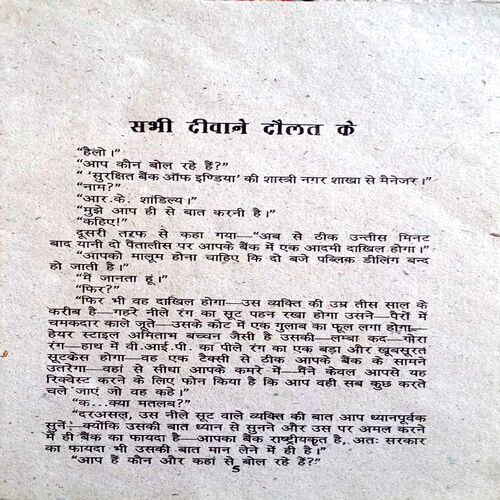 सभी दीवाने दौलत के
“हैलो।”
“आप कौन बोल रहे हैं?”
“ ‘सुरक्षित बैंक ऑफ इण्डिया’ की शास्त्री नगर शाखा से मैनेजर।”
“नाम?”
“आर.के. शांडिल्य।”
“मुझे आप ही से बात करनी है।”
“कहिए!”
दूसरी तरफ से कहा गया—“अब से ठीक उन्तीस मिनट
बाद यानी दो पैंतालीस पर आपके बैंक में एक आदमी दाखिल होगा।”
“आपको मालूम होना चाहिए कि दो बजे पब्लिक डीलिंग बन्द
हो जाती है।”
“मैं जानता हूं।”
“फिर?”
“फिर भी वह दाखिल होगा—उस व्यक्ति की उम्र तीस साल के
करीब है—गहरे नीले रंग का सूट पहन रखा होगा उसने—पैरों में
चमकदार काले जूते—उसके कोट में एक गुलाब का फूल लगा होगा—
हेयर स्टाइल अमिताभ बच्चन जैसी है उसकी—लम्बा कद—गोरा
रंग—हाथ में वी.आई.पी. का पीले रंग का एक बड़ा और खूबसूरत
सूटकेस होगा—वह एक टैक्सी से ठीक आपके बैंक के सामने
उतरेगा—वहां से सीधा आपके कमरे में—मैंने केवल आपसे यह
रिक्वेस्ट करने के लिए फोन किया है कि आप वही सब कुछ करते
चले जाएं जो वह कहे।”
“क...क्या मतलब?”
“दरअसल, उस नीले सूट वाले व्यक्ति की बात आप ध्यानपूर्वक
सुनें; क्योंकि उसकी बात ध्यान से सुनने और उस पर अमल करने
में ही बैंक का फायदा है—आपका बैंक राष्ट्रीयकृत है, अतः सरकार
का फायदा भी उसकी बात मान लेने में ही है।”
“आप हैं कौन और कहां से बोल रहे हैं?”
5